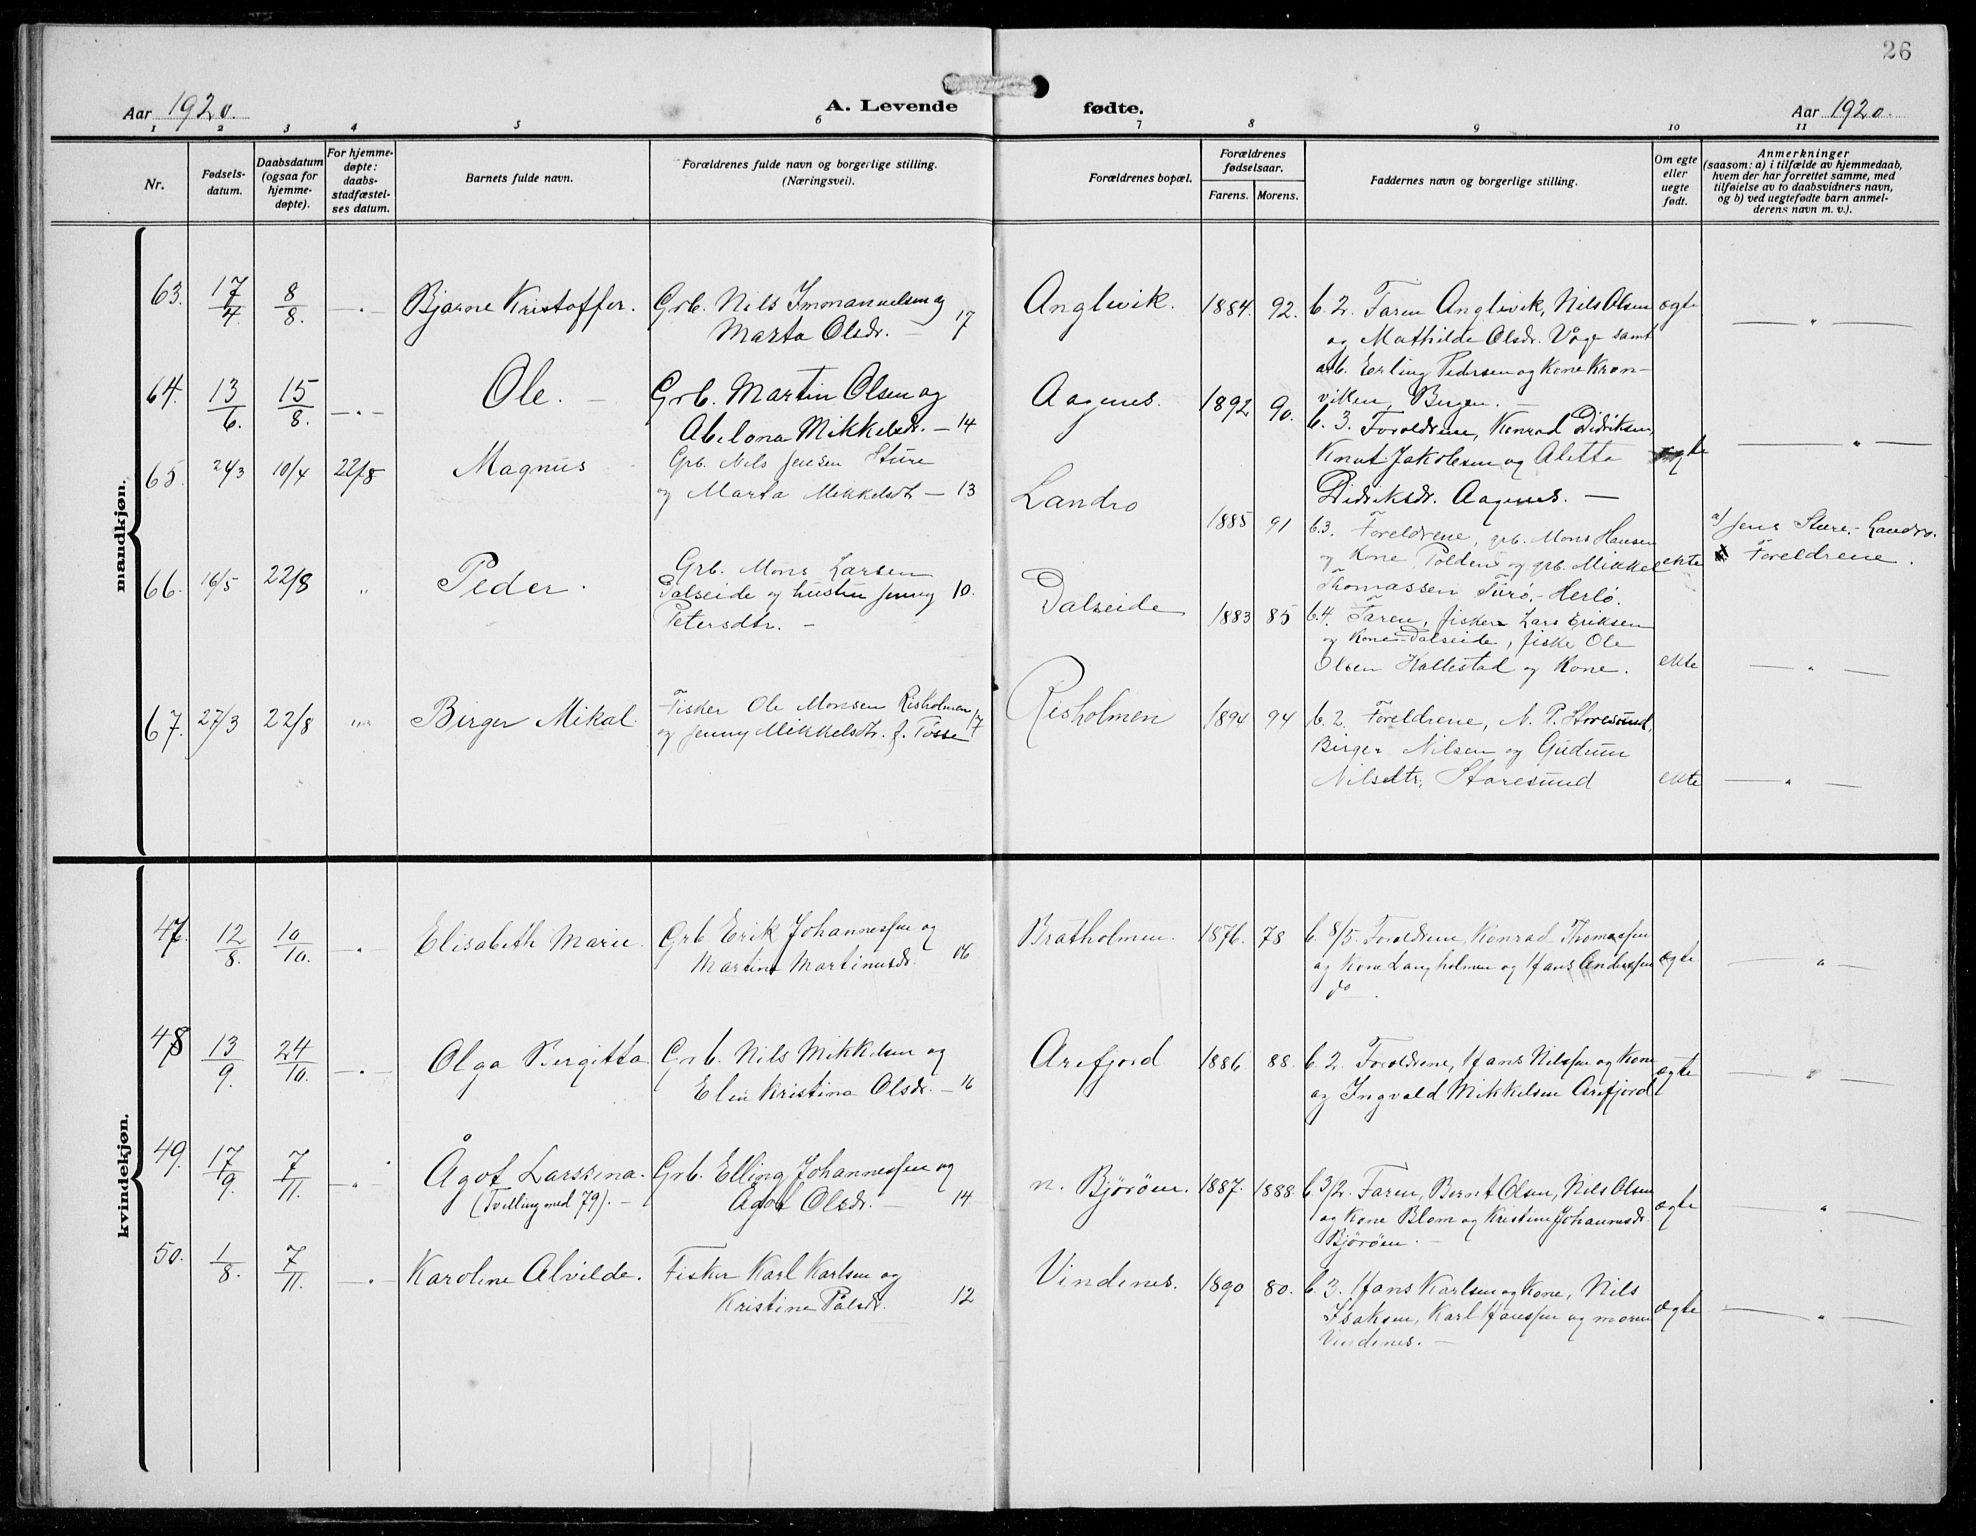 26
Aar 1920.
A. Levende fødte.
Aar 1920.
1 2 3 4 5 6 7 8 9 10 11
Nr.
Fødsels-
datum.
Daabsdatum
(ogsaa for
hjemme-
døpte).
For hjemme-
døpte:
daabs-
stadfæstel-
ses datum.
Barnets fulde navn.
Forældrenes fulde navn og borgerlige stilling.
(Næringsvei).
Forældrenes bopæl.
Forældrenes
fødselsaar.
Farens. Morens.
Faddernes navn og borgerlige stilling.
Om egte
eller
uegte
født.
Anmerkninger
(saasom: a) i tilfælde av hjemmedaab,
hvem der har forrettet samme, med
tilføielse av to daabsvidners navn,
og b) ved uegtefødte barn anmel-
derens navn m. v.).
mandkjøn.
63. 17/4. 8/8. — " — Bjarne Kristoffer.
Grb. Nils Immanuelsen og
Marta Olsdr. — 17
Anglevik. 1884. 92.
6. 2. Faren Anglevik, Nils Olsen
og Mathilde Olsdr. Våge samt
arb. Erling Pedersen og Kone Kron-
viken, Bergen. —
ægte — " —
64. 13/6. 15/8. — " — Ole. —
Grb. Martin Olsen og
Abelona Mikkelsdr. — 14
Aagenes. 1892 90.
6. 3. Foreldrene, Konrad Didriksen,
Knut Jakobsen og Aletta
Didriksdr. Aagenes. —
ægte — " —
65. 24/3 10/4 22/8 Magnus
Grb. Nils Jensen Sture
og Marta Mikkelsdtr — 13
Landro 1885 91
6.3. Foreldrene, grb. Mons Hansen
og Kone Toldnes og grb. Mikkel
Thomassen Turø, - Herlø.
ekte
a/ Jens Sture, - Landro.
Foreldrene.
66. 16/5 22/8 " Peder.
Grb. Mons Larsen
Dalseide og hustru Jenny 10.
Petersdtr. —
Dalseide 1883 85
6.4. Faren, fisker Lars Eriksen
og Kone Dalseide, fiske Ole
Olsen Hallestad og Kone.
ekte — " —
67. 27/3 22/8 " Birger Mikal.
Fisker Ole Monsen Risholmen
og Jenny Mikkelsdtr. f. Tosse 17
Risholmen 1894 94
6. 2. Foreldrene, N. P. Storesund,
Birger Nilsen og Gudrun
Nilsdtr, Storesund
ekte — " —
kvindekjøn.
47. 12/8. 10/10. — " — Elisabeth Marie.
Grb Erik Johannessen og
Martina Martinusdr. 06
Bratholmen. 1876. 78
6. 8/5. Foreldrene, Konrad Thomassen
og Kone Langholmen og Hans Anderssen
do.
ægte — " —
48 13/9. 24/10. — " — Olga Bergitta
Grb. Nils Mikkelsen og
Elen Kristina Olsdr. — 16
Arefjord 1886 88.
6. 2. Foreldrene, Hans Nilssen og Kone
og Ingvald Mikkelsen Arefjord
ægte — " —
49. 17/9. 7/11. — " — Ågot Larssina.
(Tvilling med 79). —
Grb. Elling Johannessen og
Ågot Olsdr. — 14
n. Bjørøen. 1887. 1888.
6. 3/2. Faren, Bernt Olsen, Nils Olsen
og Kone Blom og Kristine Johannesdr.
Bjørøen. —
ægte — " —
50. 1/8. 7/11. — " — Karoline Alvilde.
Fisker Karl Karlsen og
Kristine Palsdr. 12
Vindenes. 1890 80.
6. 3. Hans Karlsen og Kone, Nils
Isaksen, Karl Hanssen og moren
Vindenes. —
ægte — " —